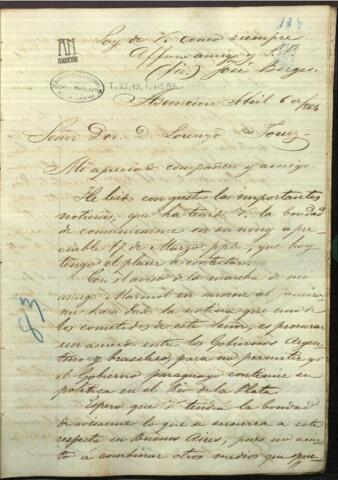 184
Soy de V. como siempre
Affmo amigo y S. S.
(fdo) José Berges.
AN
ASUNCIÓN
I-22, 12, 1, Nº 83
Asuncion Abril 6 de 1864
Señor Dor. D. Lorenzo Torres
Mi apreciado compañero y amigo
He leido con gusto las importantes
noticias, que ha tenido V. la bondad
de comunicarme en su muy apre-
ciable 17 de Marzo ppdo, que hoy
tengo el placer de contestar.
Con el aviso de la marcha de mi
amigo Marmol en mision al Janeiro
me han dado la noticia que uno de
los cometidos de este Señor, es procurar
un acuerdo entre los Gobiernos Argen-
tino y brasilero, para no permitir que
el Gobierno paraguayo continue su
politica en el Rio de la Plata.
83
Espero que V. tendra la bondad
de avisarme lo que se susurra a este
respecto en Buenos Aires, pues no acier-
to á combinar otros medios que que